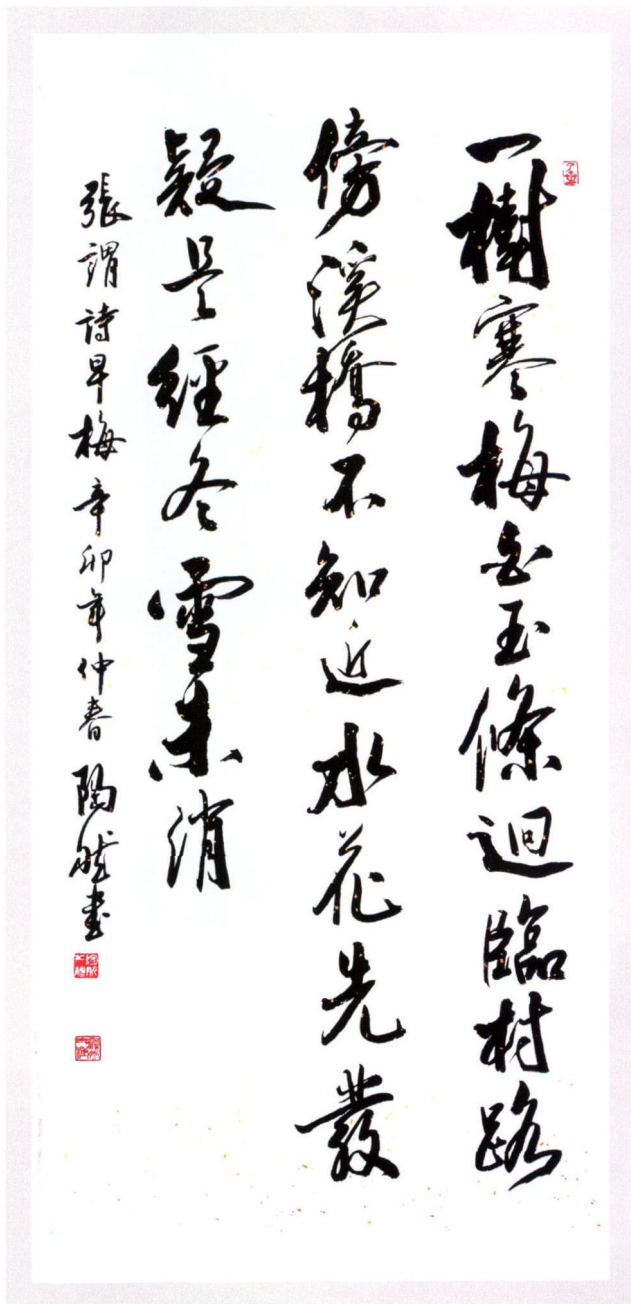 一樹寒梅白玉條迴臨村路
傍溪橋不知近水花先發
疑是經冬雪未消
張謂詩早梅辛卯年仲春陶然書